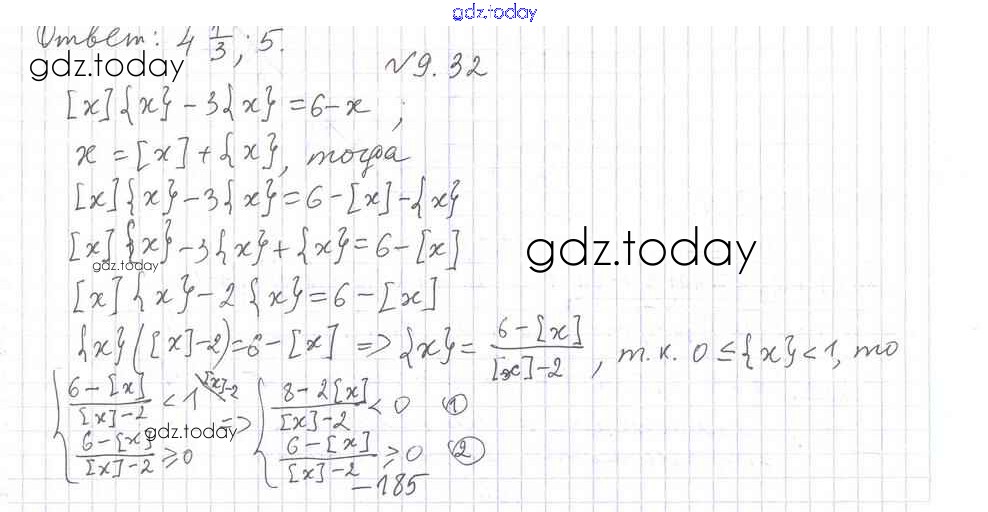 gdz.today
Ответ: 4 1/3; 5.
gdz.today
№9.32
[x]{x} - 3{x} = 6 - x ;
x = [x] + {x}, тогда
[x]{x} - 3{x} = 6 - [x] - {x}
[x]{x} - 3{x} + {x} = 6 - [x]
gdz.today
gdz.today
[x]{x} - 2{x} = 6 - [x]
{x}([x]-2) = 6 - [x] => {x} = (6 - [x])/([x] - 2), т.к. 0 ≤ {x} < 1, то
{ (6 - [x])/([x] - 2) < 1 \[x]-2 => { (8 - 2[x])/([x] - 2) < 0 ①
(6 - [x])/([x] - 2) ≥ 0 (6 - [x])/([x] - 2) ≥ 0 ②
gdz.today
-185